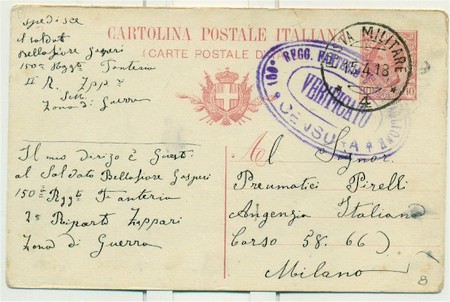 spedisce
il soldato
Bellofiore Gasperi
150° Regg Fanteria
II R. Zapp
Zona di Guerra
CARTOLINA POSTALE ITALIANA
(CARTE POSTALE D'
150° REGG. FANTERIA
VERIFICATO
CENSURA
POSTA MILITARE
4
10
Il mio dirizo è Questi
al Soldato Bellofiore Gasperi
150° Regg Fanteria
2° Riparto Zappari
Zona di Guerra
Al Signor
Pneumatici Pirelli
Angenzia Italiana
Corso 58. 66)
Milano
8